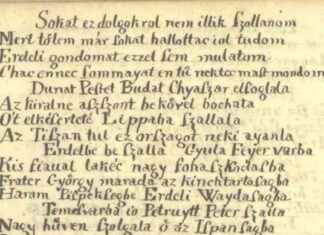 Sokat ez dolgokrol nem illik szollanom
Mert tőlem már sokat hallottac iol tudom
Erdeli gondomat ezzel sem mulatom
Chac ennec summayat en tü nektec mast mondom
Dunat Pestet Budat Chyaszar elfoglala
Az kiralne aszszont bekövel bochata
Ö't elkesertete Lippaba szallala
Az Tiszan tul ez orszagot neki ayanla
Erdelbe be szalla Gyula Feyervarba
Kis fiaual lakéc nagy fohaszkodasba
Frater György marada az kinchtartosagba
Harom Pispeksegbe Erdeli Waydasagba
Temesvarba io Petruytt Peter szalla
Nagy hüven szolgala ö az Ispansagba